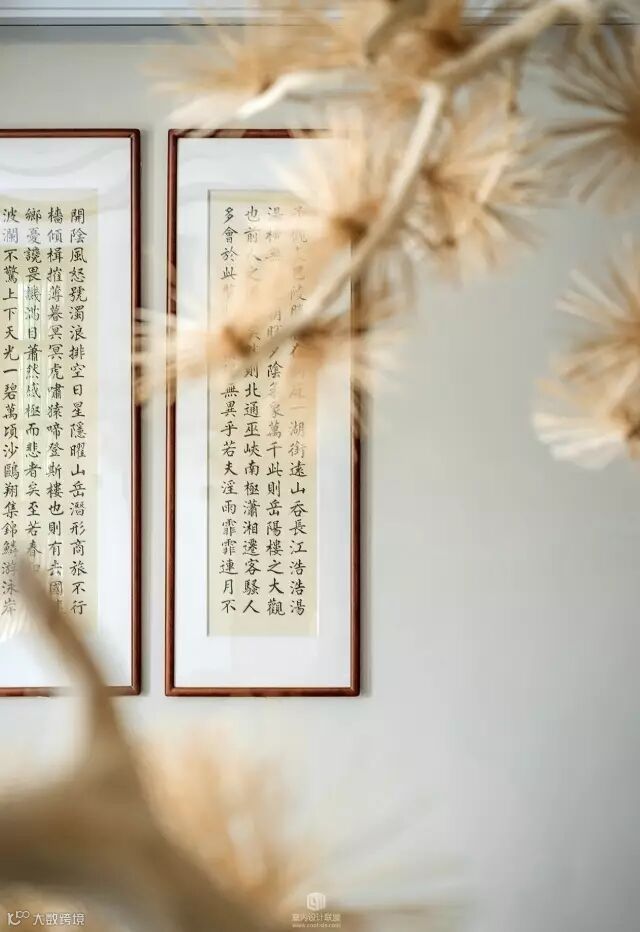 巴陵
一湖銜遠山吞長江浩浩湯
無朝暉夕陰象萬千此則岳陽樓之大觀
也前人之矣則北通巫峽南極瀟湘遷客騷人
多會於此無異乎若夫淫雨霏霏連月不
開陰風怒號濁浪排空日星隱曜山岳潛形商旅不行
檣傾楫摧薄暮冥冥虎嘯猿啼登斯樓也則有去國
鄉憂讒畏譏滿目蕭然感極而悲者矣至若春
波瀾不驚上下天光一碧萬頃沙鷗翔集錦鱗游泳岸
大数跨境
室内设计联盟